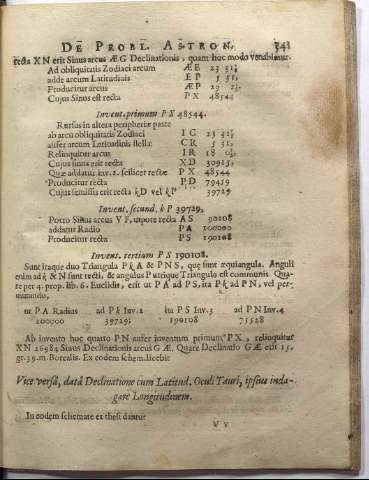 DE PROBL. ASTRON. 341
recta XN erit Sinus arcus ÆG Declinationis, quam hoc modo venabimur.
Ad obliquitatis Zodiaci arcum ÆE 23 31½
adde arcum Latitudinis EP 5 31,
Producitur arcus ÆP 29 2½
Cujus Sinus est recta PX 48544
Invent. primum PX 48544.
Rursus in altera peripheriæ parte
ab arcu obliquitatis Zodiaci IG 23 31½
aufer arcum Latitudinis stellæ CR 5 31,
Relinquitur arcus IR 18 0½
Cujus sinus erit recta XD 30915,
Quæ addatur inv. 1. scilicet rectæ PX 48544
Producitur recta PD 79459
Cujus semissis erit recta kD vel kP 39729
Invent. secund. kP 39729,
Porro Sinus arcus VF, utpote recta AS 90108
addatur Radio PA 100000
Producitur recta PS 190108
Invent. tertium PS 190108.
Sunt itaque duo Triangula PkA & PNS, quæ sunt æquiangula. Anguli
enim ad k & N sunt recti, & angulus P utrique Triangulo est communis Qua-
re per 4. prop. lib. 6. Euclidis, erit ut PA ad PS, ita Pk ad PN, vel per-
mutando,
ut PA Radius ad Pk Inv. 2 ita PS Inv. 3 ad PN Inv. 4
100000 39729; 190108 75528
Ab invento hoc quarto PN aufer inventum primum PX, relinquitur
XN 26984 Sinus Declinationis arcus GÆ, Quare Declinatio GÆ est 15.
gr. 39. m. Borealis. Ex eodem schem. licebit
Vice versâ, datâ Declinatione cum Latitud. Oculi Tauri, ipsius inda-
gare Longitudinem.
In eodem schemate ex thesi dantur